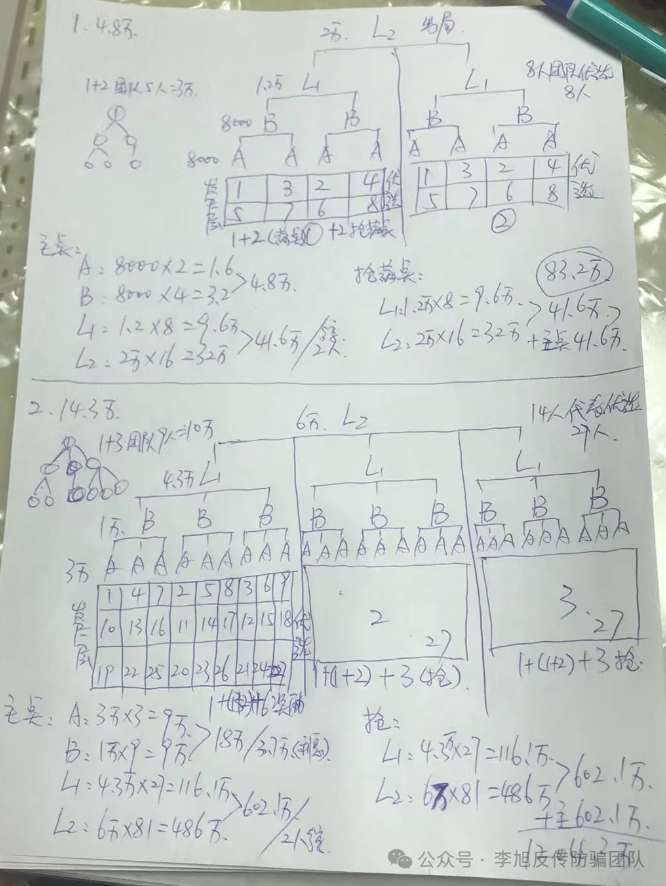 1. 4.8万.
2万 L₂ 出局
1+2团队5人=3万.
1
1.2万 L₁
L₁
8人团队优选
8人
8000 B B
B B
8000 A A A A
A A A A
发展层
1 3 2 4
5 7 6 8
优选
1 3 2 4
5 7 6 8
优选
1+2(落点)① +2抢落点
②
主点:
A: 8000×2=1.6
B: 8000×4=3.2
>4.8万
L₁=1.2×8=9.6万
L₂=2万×16=32万
>41.6万/
2人
抢落点:
83.2万
L₁:1.2万×8=9.6万
L₂:2万×16=32万
>41.6万
+主点41.6万
2. 14.3万.
1+3团队9人=10万
6万 L₂
14人代表优选
27人
4.3万 L₁
L₁
L₁
1万 B B B
B B B
B B B
3万 A A A A A A A A A
A A A A A A A A A
A A A A A A A A A
发展层
1 4 7 2 5 8 3 6 9
10 13 16 11 14 17 12 15 18
19 22 25 20 23 26 21 24 27
优选
2
27
3.
27
1+(1+2)+3(抢).
1+(1+2)+3抢
主点: A:3万×3=9万
B:1万×9=9万
>18万/3.7万
L₁=4.3万×27=116.1万
L₂=6万×81=486万
>602.1万/
抢:
L₁=4.3万×27=116.1万
L₂:6万×81=486万
>602.1万
+主602.1万
公众号 · 李旭反传防骗团队